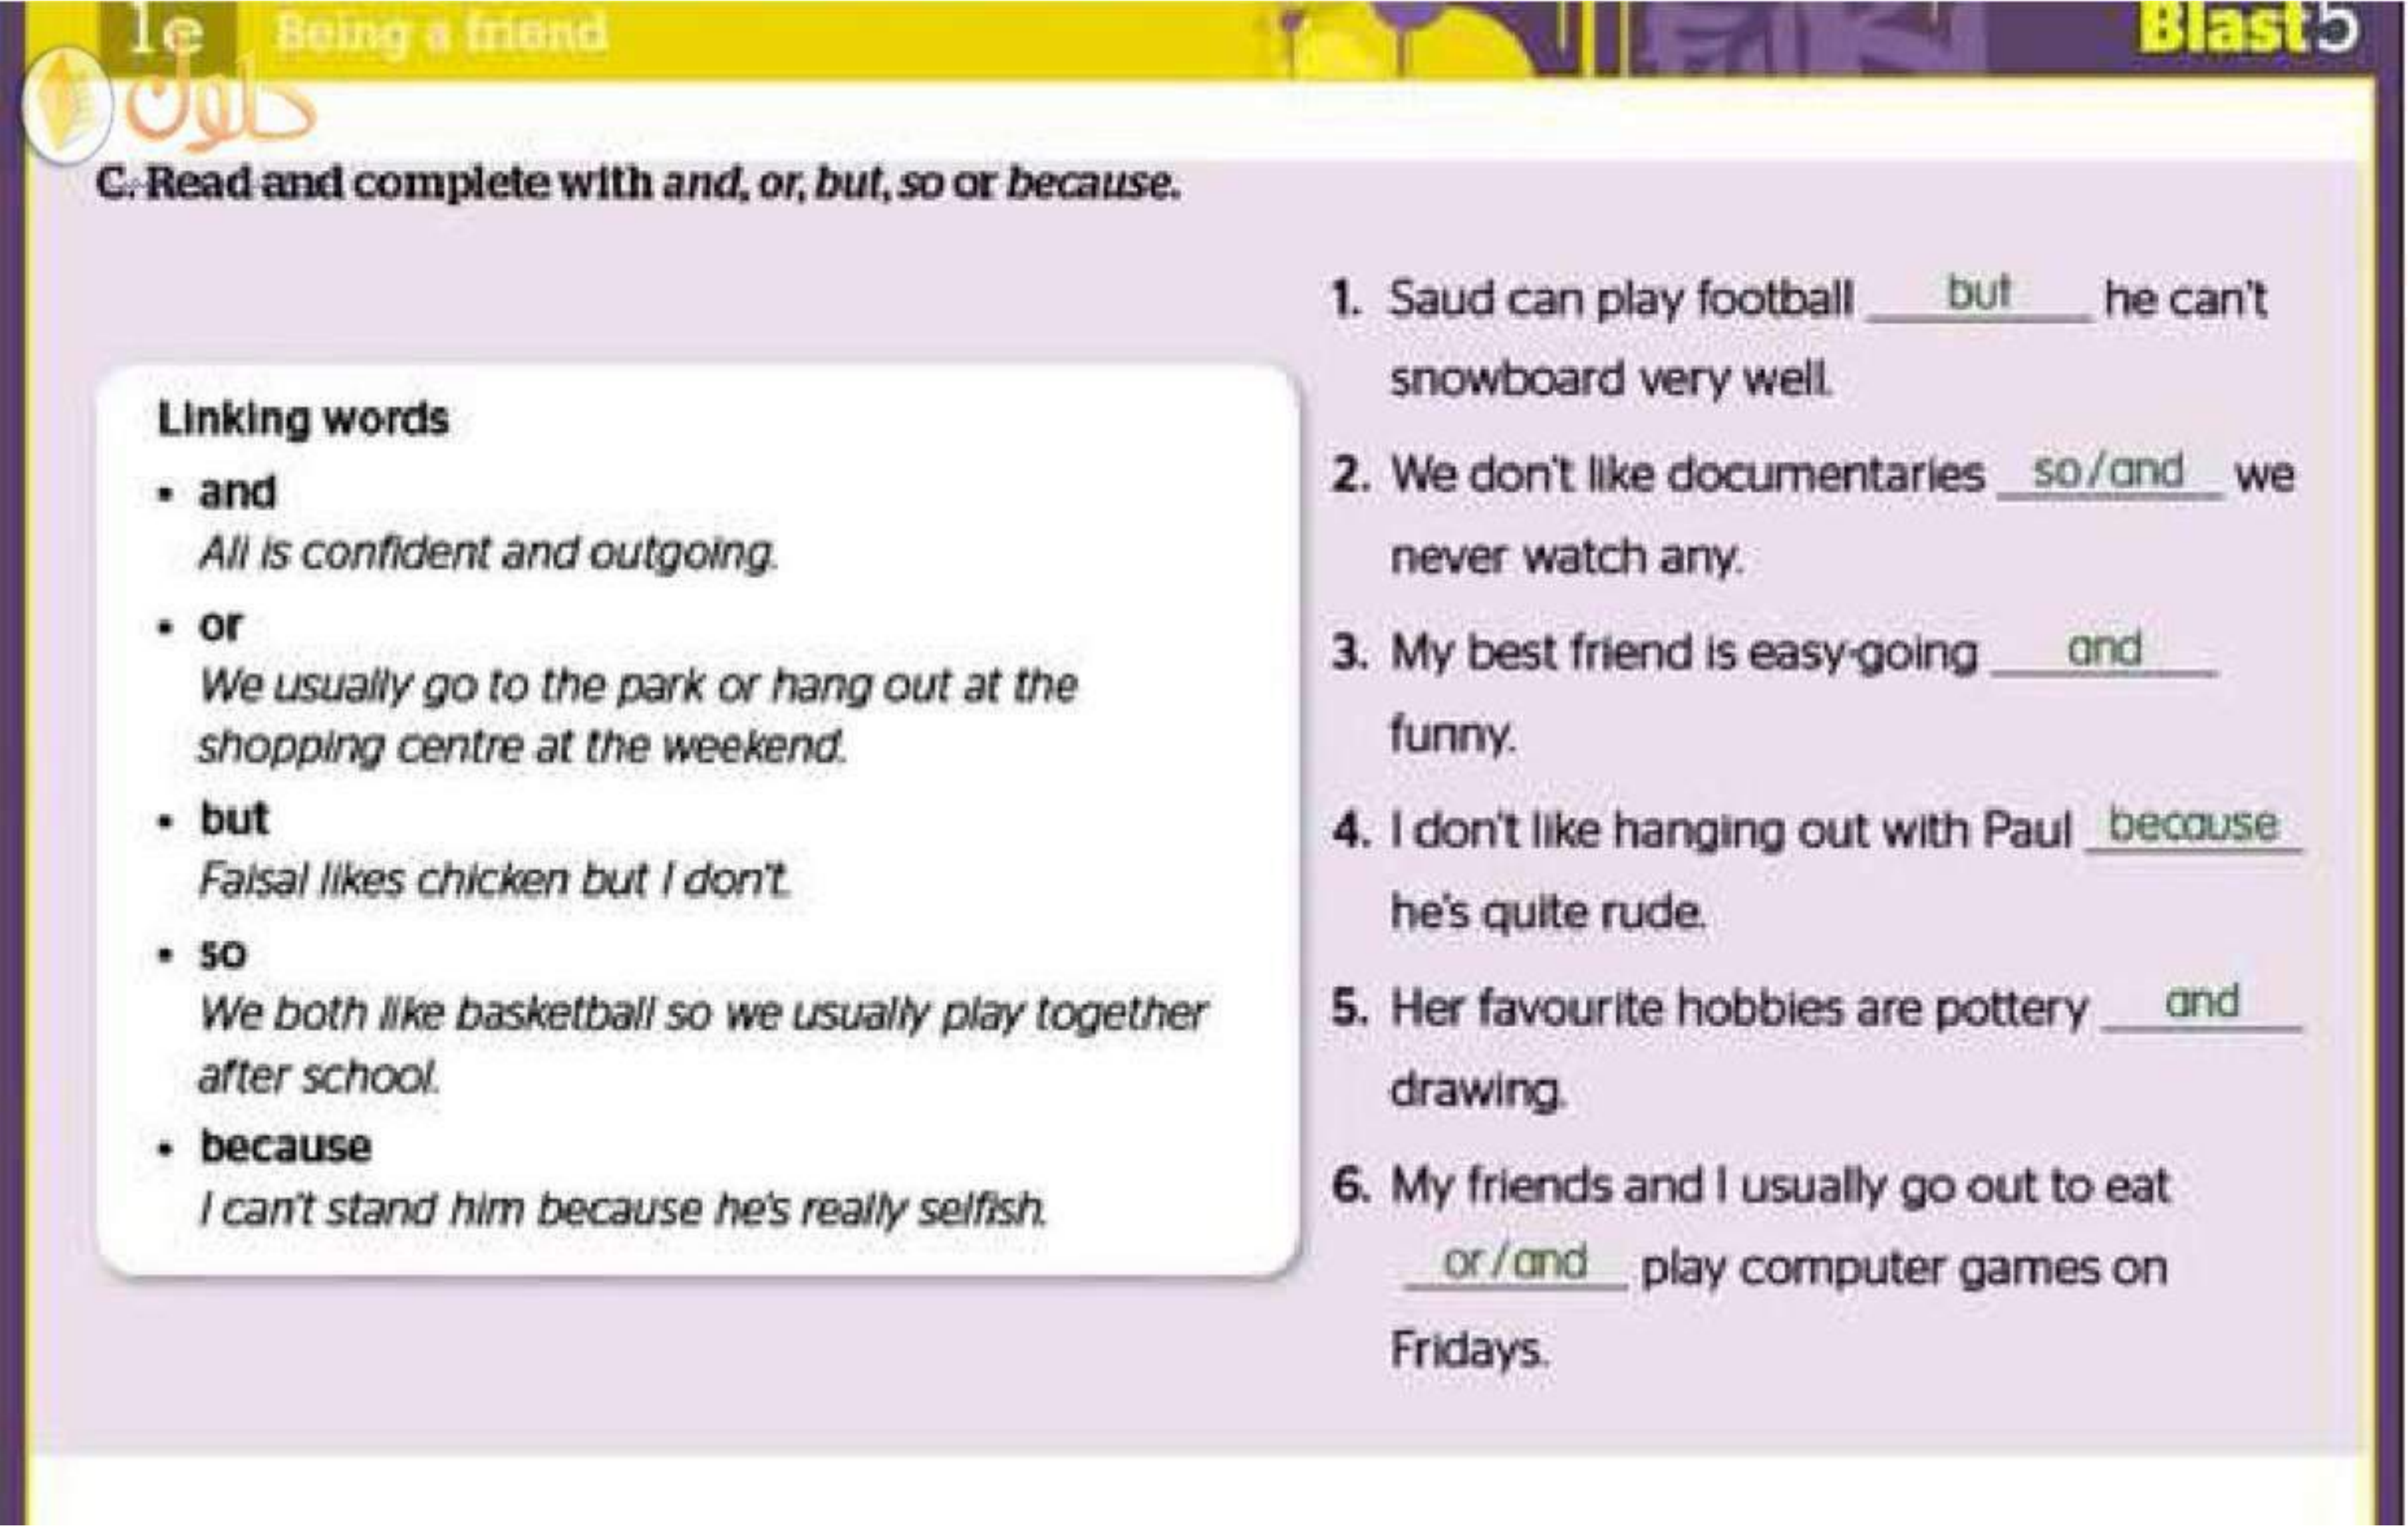 1e Being a friend
Blast5
حلول
C. Read and complete with and, or, but, so or because.
Linking words
• and
Ali is confident and outgoing.
• or
We usually go to the park or hang out at the
shopping centre at the weekend.
• but
Faisal likes chicken but I don't.
• so
We both like basketball so we usually play together
after school.
• because
I can't stand him because he's really selfish.
1. Saud can play football but he can't
snowboard very well.
2. We don't like documentaries so/and we
never watch any.
3. My best friend is easy-going and
funny.
4. I don't like hanging out with Paul because
he's quite rude.
5. Her favourite hobbies are pottery and
drawing.
6. My friends and I usually go out to eat
or/and play computer games on
Fridays.